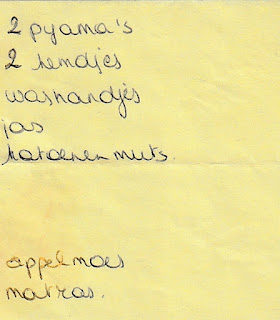 2 pyama's
2 hemdjes
washandjes
jas
katoenen muts.
appelmoes
matras.